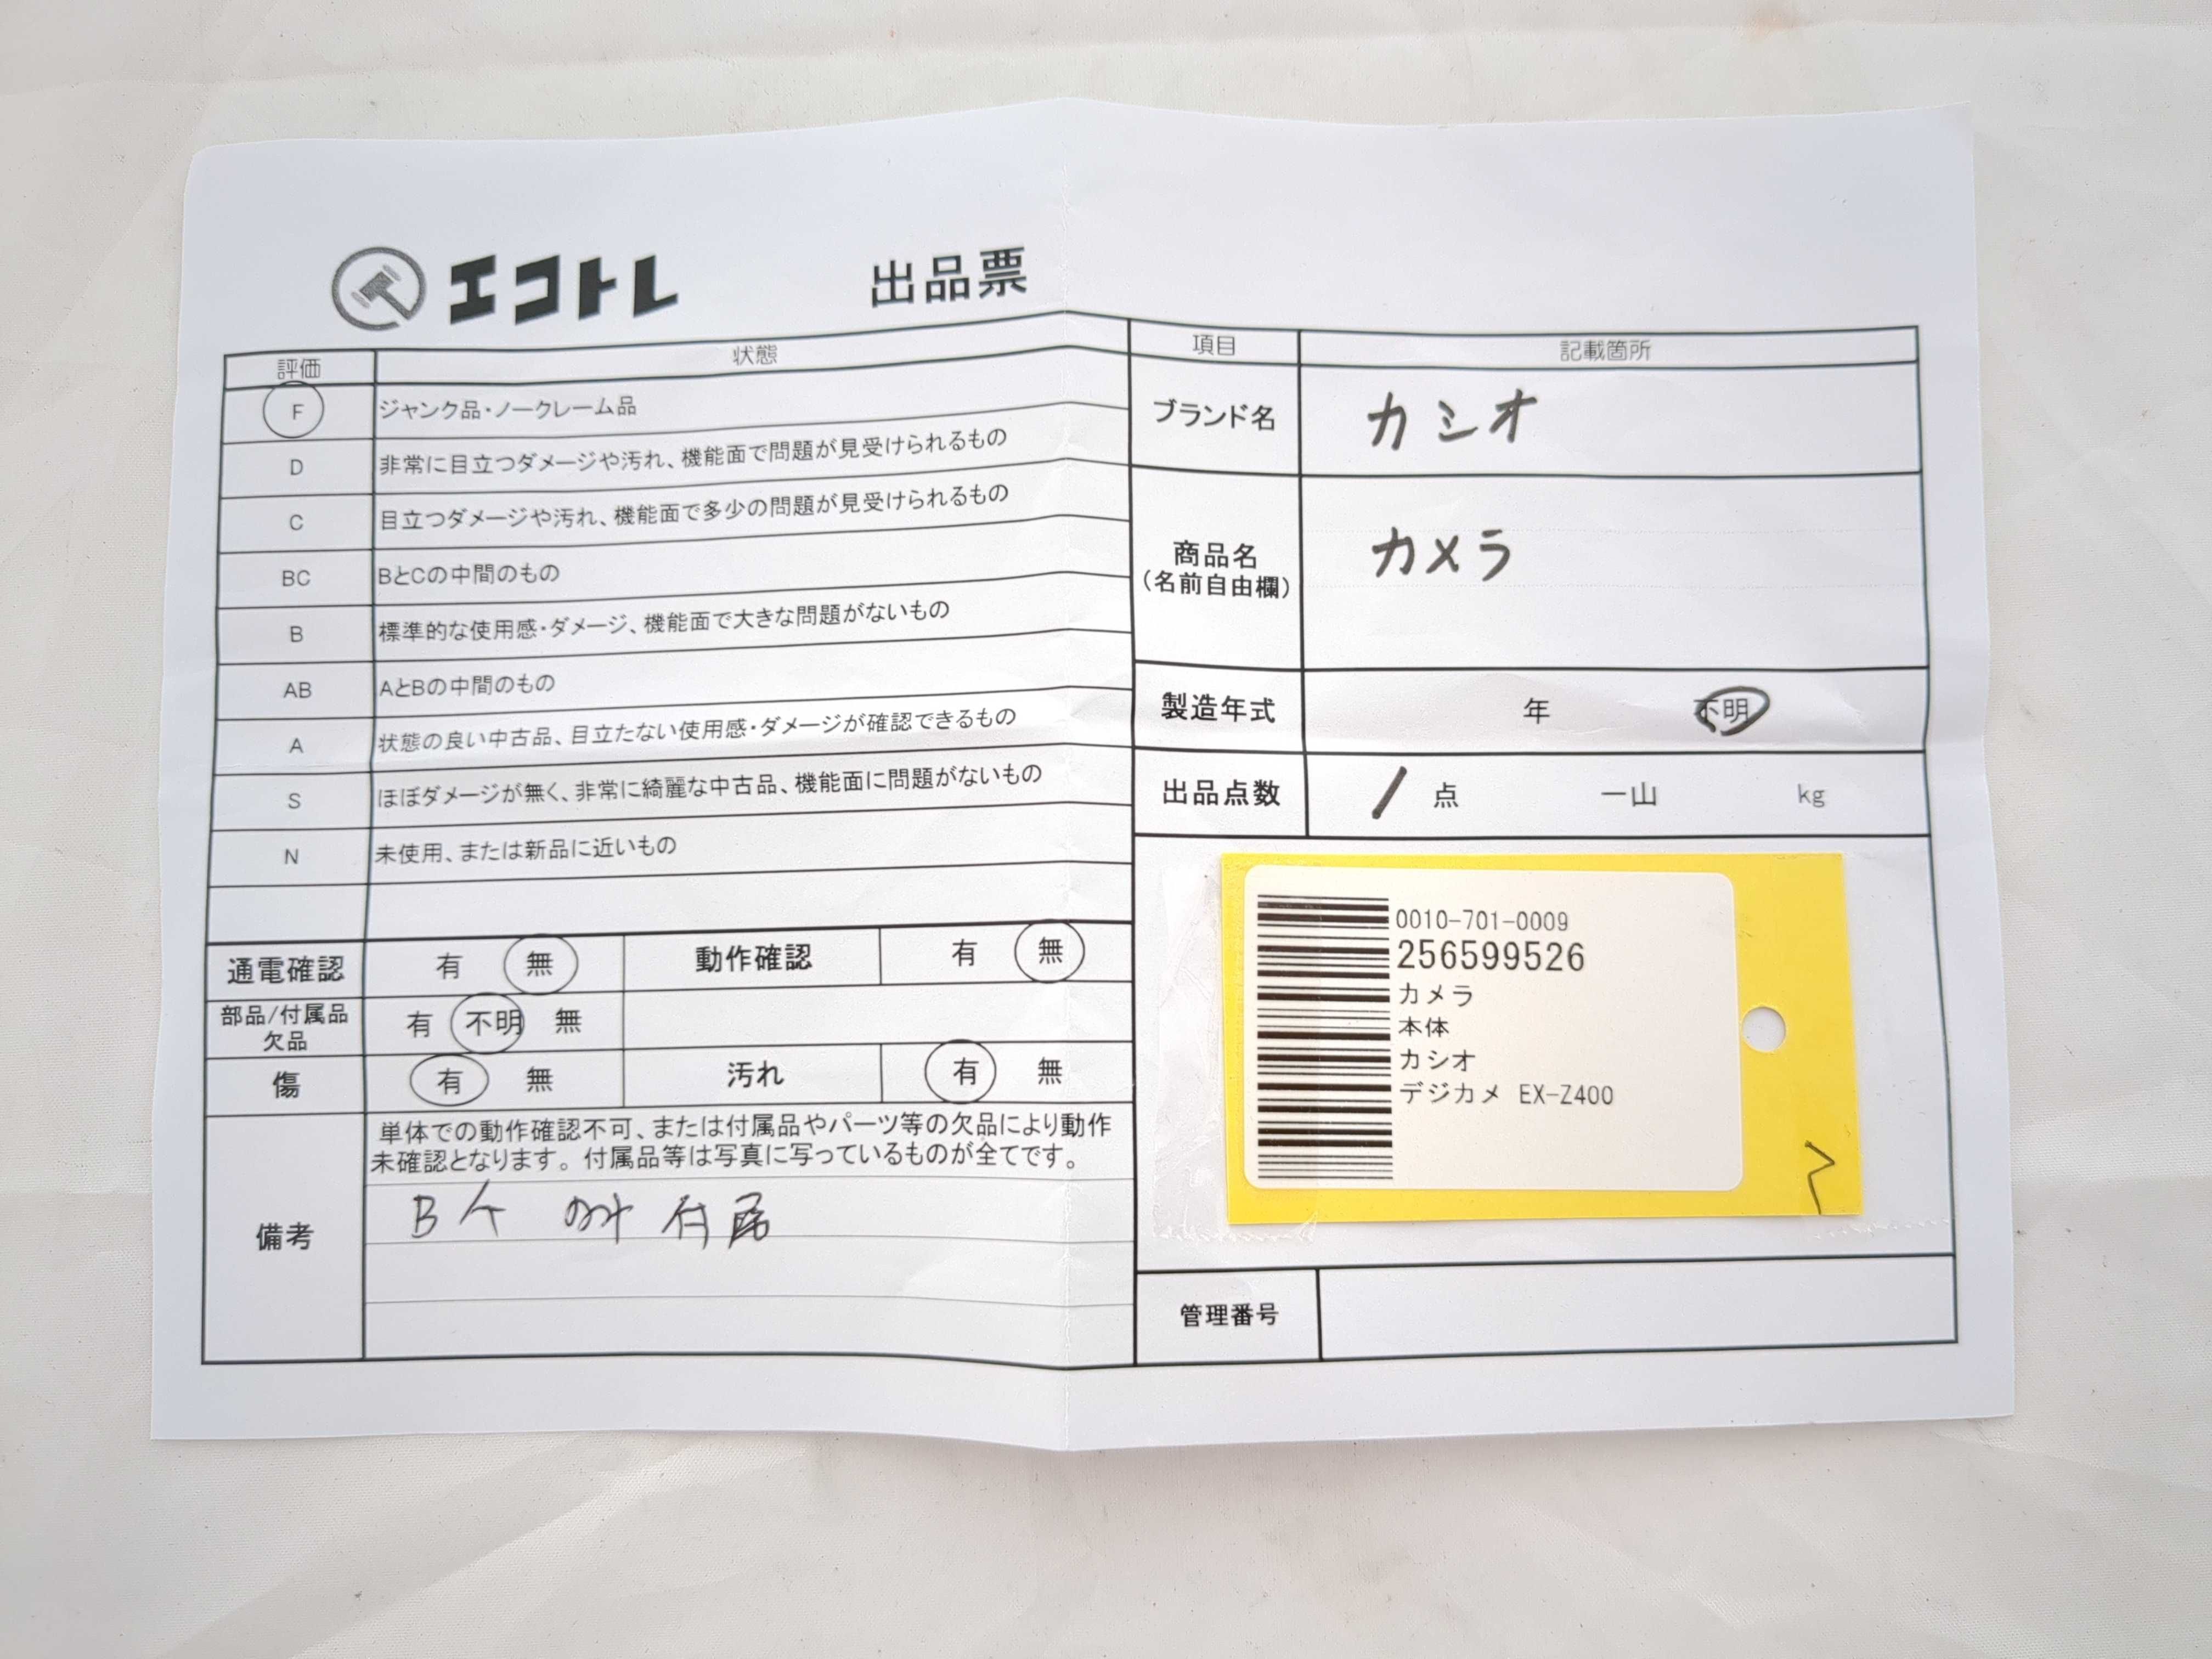 エコトレ 出品票
評価 状態
F ジャンク品・ノークレーム品
D 非常に目立つダメージや汚れ、機能面で問題が見受けられるもの
C 目立つダメージや汚れ、機能面で多少の問題が見受けられるもの
BC BとCの中間のもの
B 標準的な使用感・ダメージ、機能面で大きな問題がないもの
AB AとBの中間のもの
A 状態の良い中古品、目立たない使用感・ダメージが確認できるもの
S ほぼダメージが無く、非常に綺麗な中古品、機能面に問題がないもの
N 未使用、または新品に近いもの
通電確認 有 無 動作確認 有 無
部品/付属品 有 不明 無
欠品
傷 有 無 汚れ 有 無
備考
単体での動作確認不可、または付属品やパーツ等の欠品により動作
未確認となります。付属品等は写真に写っているものが全てです。
付属
項目 記載箇所
ブランド名 カシオ
商品名 カメラ
(名前自由欄)
製造年式 年 不明
出品点数 1 点 一山 kg
0010-701-0009
256599526
カメラ
本体
カシオ
デジカメ EX-Z400
管理番号